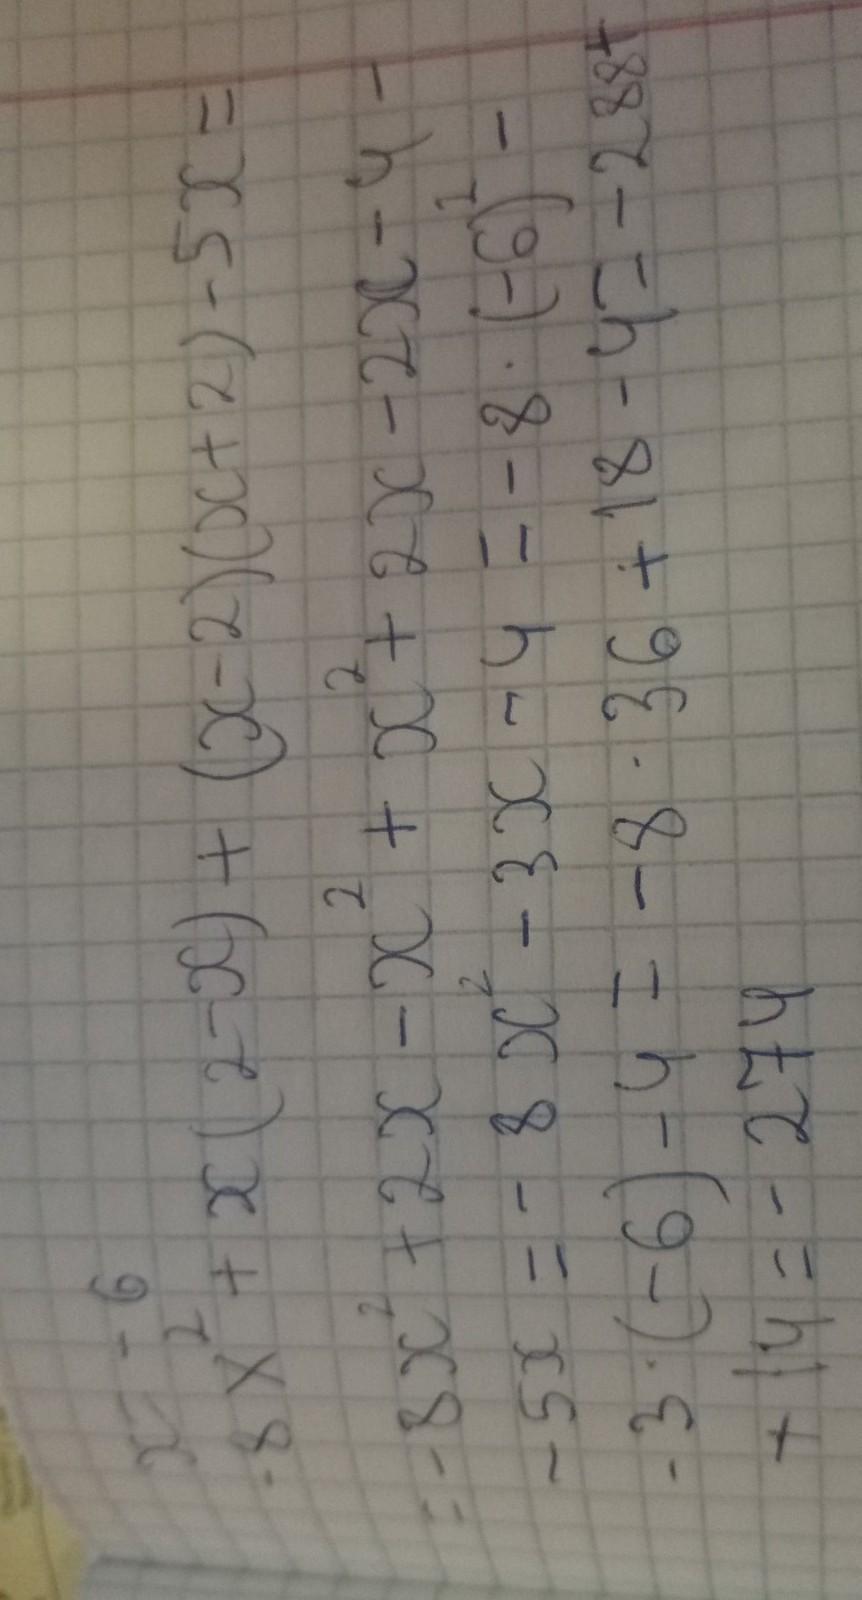 x - -6
-8x² + x(2-x) + (x-2)(x+2) - 5x =
= -8x² + 2x - x² + x² + 2x - 2x - 4 -
- 5x = -8x² - 3x - 4 = -8 · (-6)² -
- 3 · (-6) - 4 = -8 · 36 + 18 - 4 = -288 +
+ 14 = -274